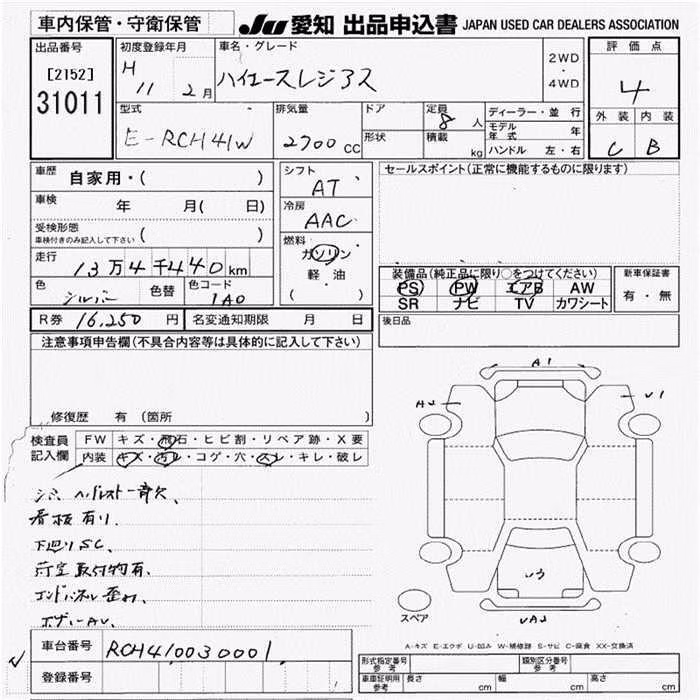 車内保管・守衛保管 JU 愛知 出品申込書 JAPAN USED CAR DEALERS ASSOCIATION
出品番号 初度登録年月 車名・グレード 2WD・4WD 評価点
[2152] H 11 2月 ハイエースレジアス 4
31011 型式 排気量 ドア 定員 8人 ディーラー・並行 外装 内装
E-RCH41W 2700cc 形状 積載 kg モデル年式 年 C B
ハンドル 左・右
車歴 自家用・( ) シフト セールスポイント(正常に機能するものに限ります)
車検 年 月( 日) AT
受検形態 ( ) 冷房
車検付きのみ記入して下さい AAC
走行 13万4千440km 燃料 ガソリン 装備品(純正品に限り○をつけてください) 新車保証書
色 シルバー 色替 色コード 1A0 軽油 PS PW エアB AW 有・無
( ) SR ナビ TV カワシート
R券 16,250円 名変通知期限 月 日 後日品
注意事項申告欄(不具合内容等は具体的に記入して下さい)
A1
AU U1
修復歴 有(箇所 )
検査員記入欄 FW キズ・飛石・ヒビ割・リペア跡・X要
内装 キズ・汚レ・コゲ・穴・スレ・キレ・破レ
シミ
看板有り、
下廻りSC、
荷室取付物有、
エンドパネル歪み、
ボデーAU、
U3
スペア UA2
A-キズ E-エクボ U-凹み W-補修跡 S-サビ C-腐食 XX-交換済
車台番号 RCH410030001
登録番号
型式指定番号 参考 類別区分番号 参考
車庫証明用 参考 長さ cm 幅 cm 高さ cm